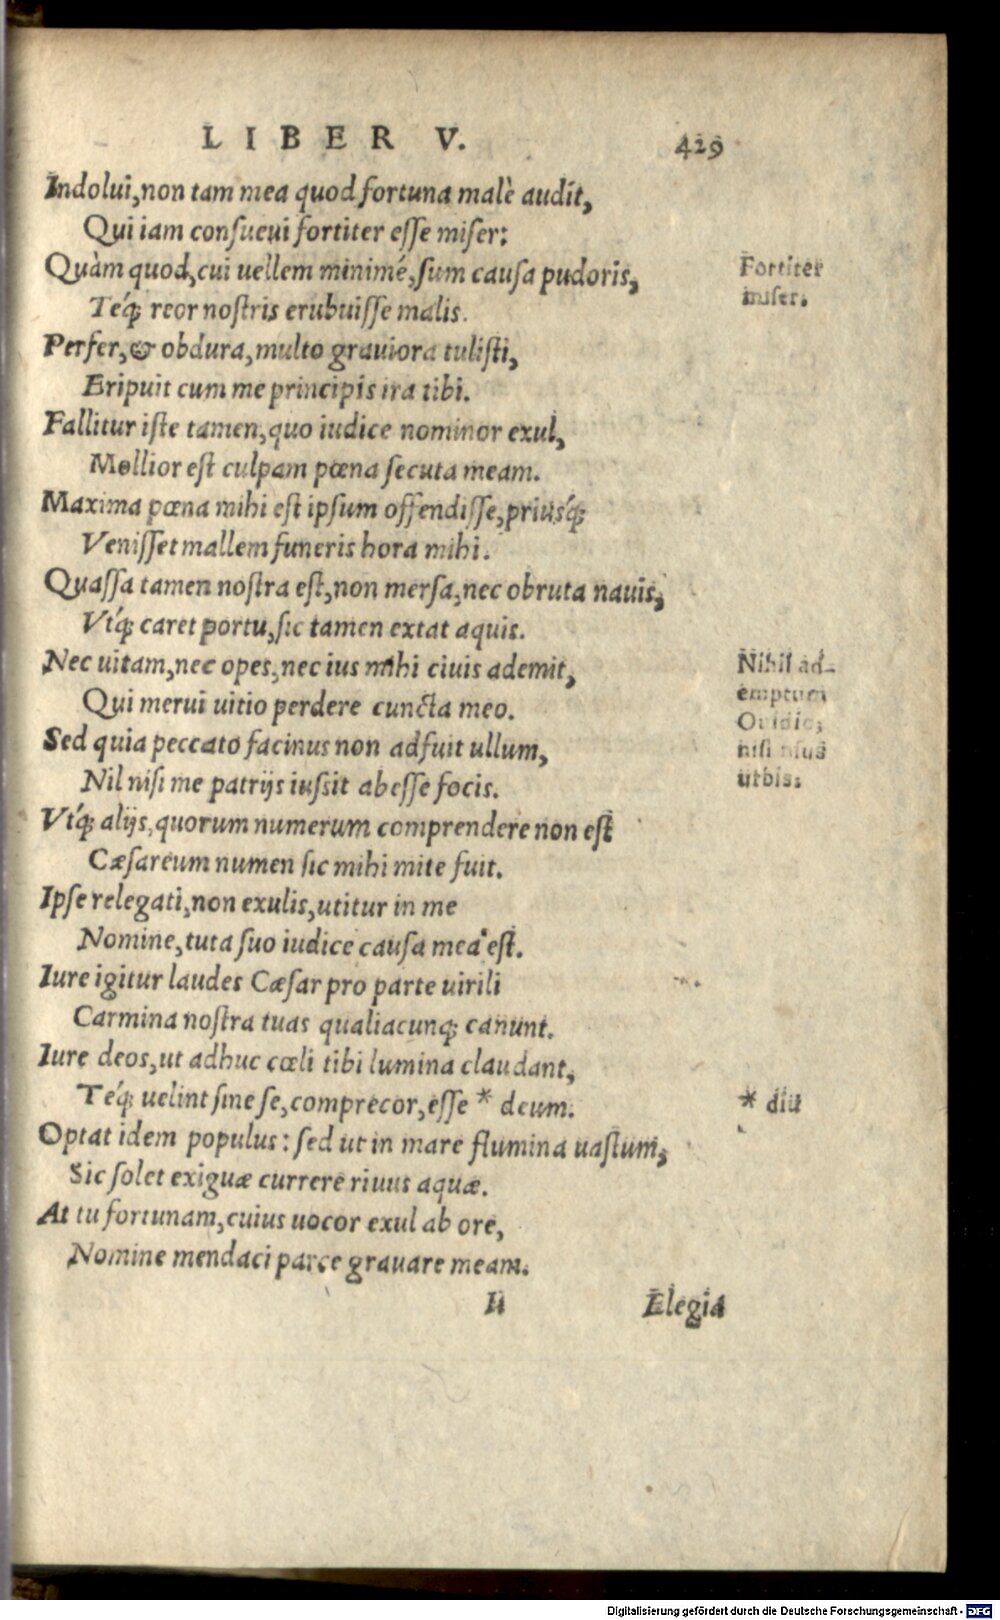 LIBER V. 429
Indolui, non tam mea quod fortuna malè audit,
Qui iam consueui fortiter esse miser:
Quàm quod, cui uellem minimé, sum causa pudoris,
Téq; reor nostris erubuisse malis.
Fortiter
miser.
Perfer, & obdura, multo grauiora tulisti,
Eripuit cum me principis ira tibi.
Fallitur iste tamen, quo iudice nominor exul,
Mollior est culpam pœna secuta meam.
Maxima pœna mihi est ipsum offendisse, priúsq;
Venisset mallem funeris hora mihi.
Quassa tamen nostra est, non mersa, nec obruta nauis,
Vtq́; caret portu, sic tamen extat aquis.
Nec uitam, nec opes, nec ius mihi ciuis ademit,
Qui merui uitio perdere cuncta meo.
Sed quia peccato facinus non adfuit ullum,
Nil nisi me patrijs iussit abesse focis.
Nihil ad-
emptum
Ouidio,
nisi usus
urbis.
Vtq́; alijs, quorum numerum comprendere non est
Cæsareum numen sic mihi mite fuit.
Ipse relegati, non exulis, utitur in me
Nomine, tuta suo iudice causa mea est.
Iure igitur laudes Cæsar pro parte uirili
Carmina nostra tuas qualiacunq; canunt.
Iure deos, ut adhuc cœli tibi lumina claudant,
Téq; uelint sine se, comprecor, esse * deum.
* diu
Optat idem populus: sed ut in mare flumina uastum,
Sic solet exiguæ currere riuus aquæ.
At tu fortunam, cuius uocor exul ab ore,
Nomine mendaci parce grauare meam.
Elegia
Digitalisierung gefördert durch die Deutsche Forschungsgemeinschaft - DFG